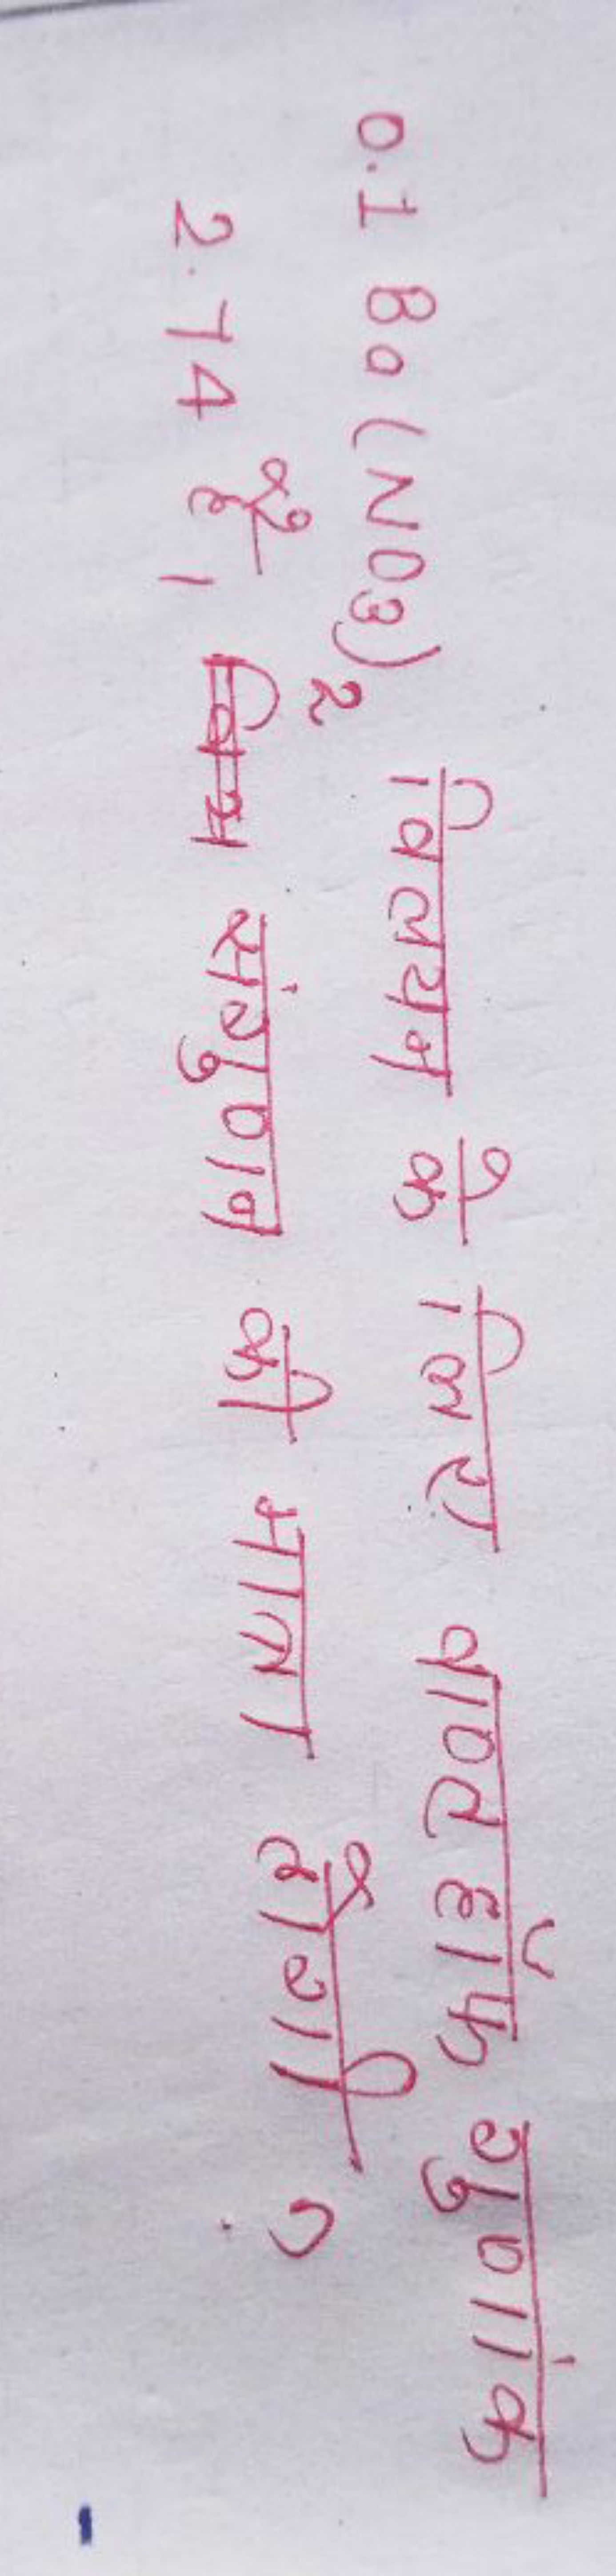 0.1 Ba(NO3)2 विलयन के लिए वाण्ट हॉफ गुणांक
2.74 है। संगुणन की मात्रा होगी ?